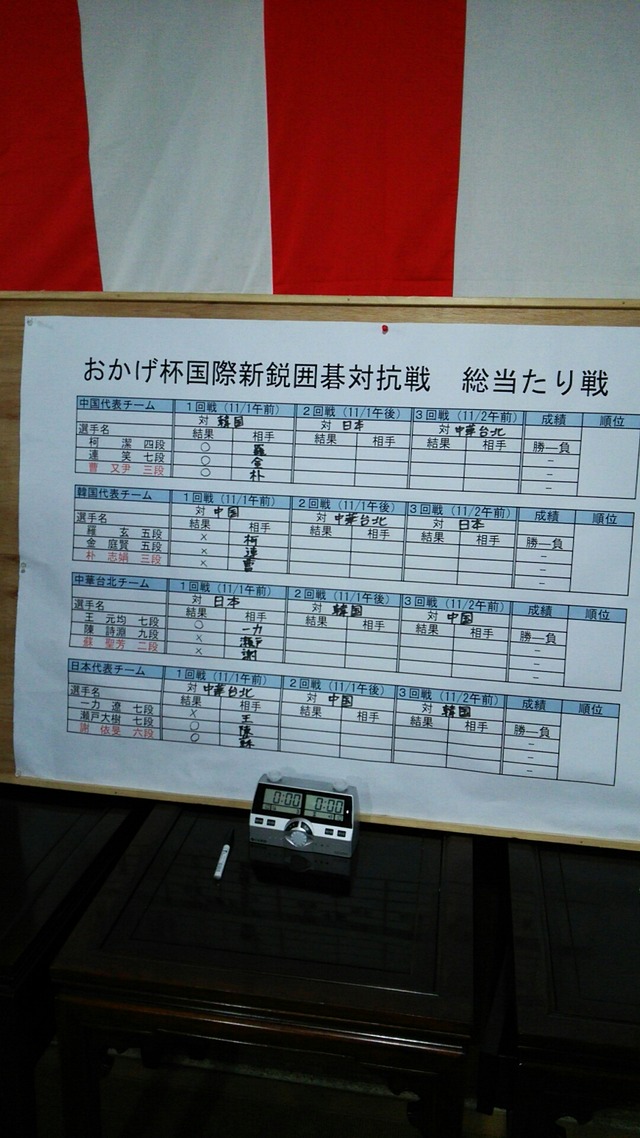 おかげ杯国際新鋭囲碁対抗戦　総当たり戦
中国代表チーム １回戦（11/1午前） ２回戦（11/1午後） ３回戦（11/2午前） 成績 順位
対 韓国 対 日本 対 中華台北
選手名 結果 相手 結果 相手 結果 相手 勝―負
柯　潔 四段 ○ 羅
連　笑 七段 ○ 金 －
曹 又尹 三段 ○ 朴 －
韓国代表チーム １回戦（11/1午前） ２回戦（11/1午後） ３回戦（11/2午前） 成績 順位
対 中国 対 中華台北 対 日本
選手名 結果 相手 結果 相手 結果 相手 勝―負
羅　玄 五段 × 柯 －
金 庭賢 五段 × 連 －
朴 志娟 三段 × 曹 －
中華台北チーム １回戦（11/1午前） ２回戦（11/1午後） ３回戦（11/2午前） 成績 順位
対 日本 対 韓国 対 中国
選手名 結果 相手 結果 相手 結果 相手 勝―負
王 元均 七段 ○ 一力 －
陳 詩淵 九段 × 瀬戸 －
蘇 聖芳 二段 × 謝 －
日本代表チーム １回戦（11/1午前） ２回戦（11/1午後） ３回戦（11/2午前） 成績 順位
対 中華台北 対 中国 対 韓国
選手名 結果 相手 結果 相手 結果 相手 勝―負
一力 遼 七段 × 王 －
瀬戸大樹 七段 ○ 陳 －
謝 依旻 六段 ○ 蘇 －
0:00 0:00